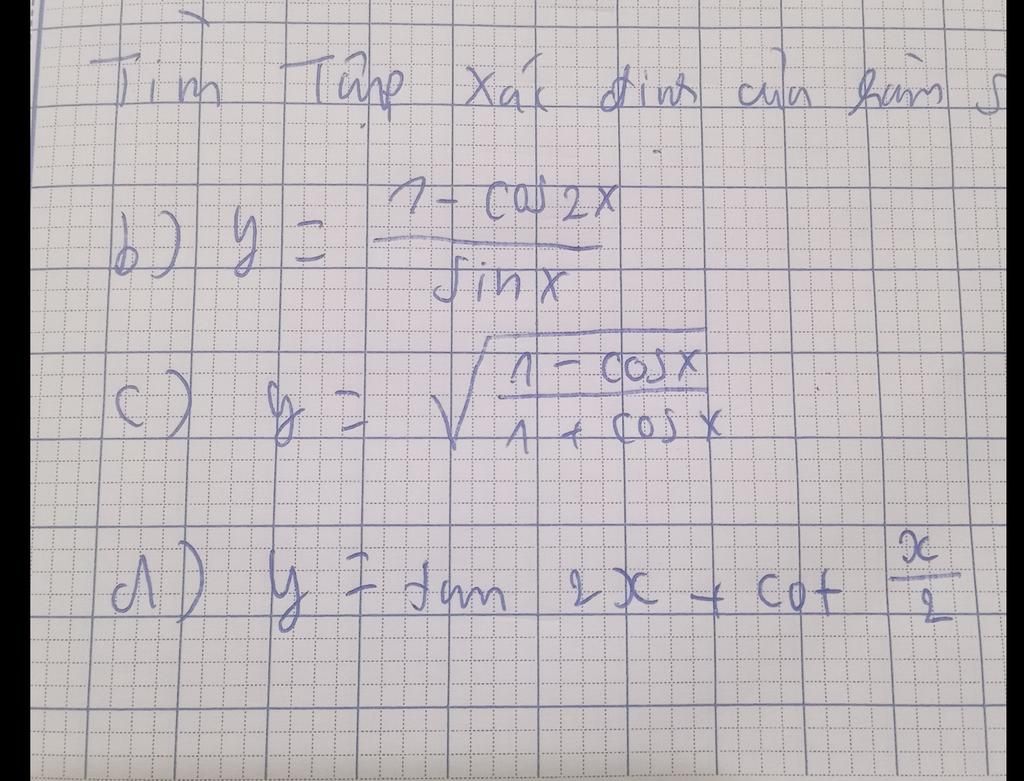 Tìm Tập xác định của hàm s
b) y = \frac{1 - cos 2x}{sin x}
c) y = \sqrt{\frac{1 - cos x}{1 + cos x}}
d) y = tan 2x + cot \frac{x}{2}